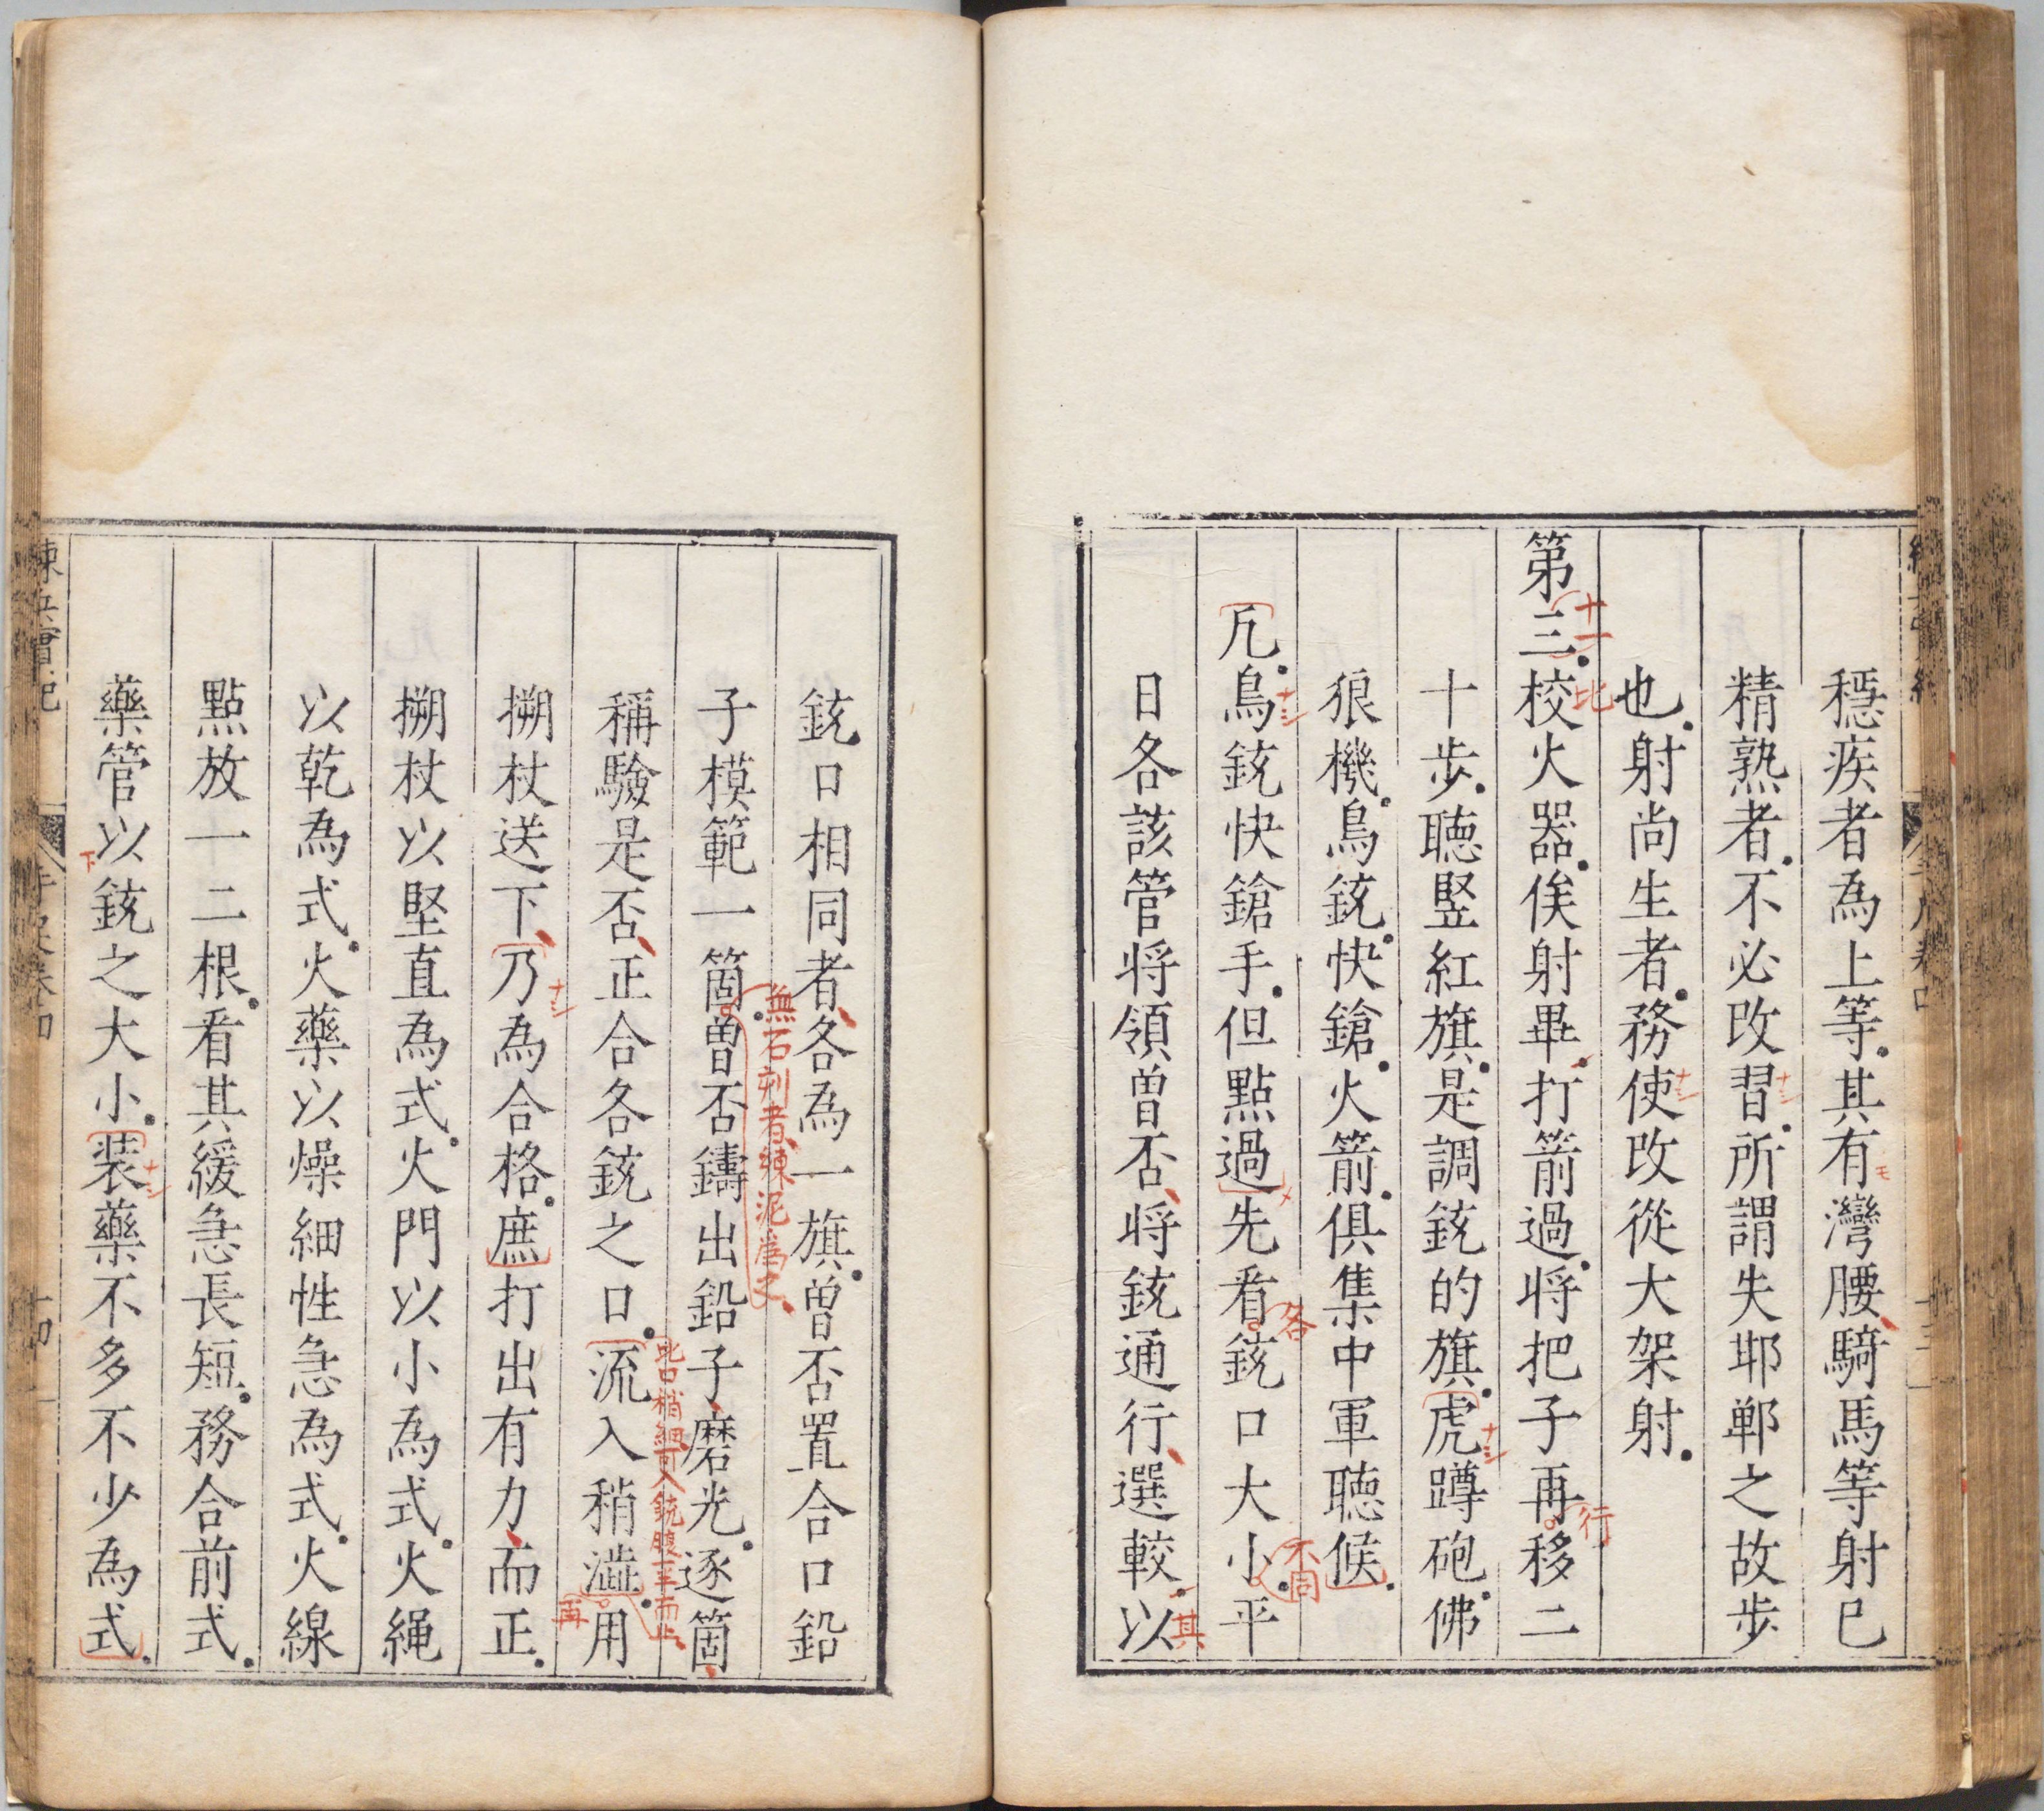 穩疾者為上等其有灣腰騎馬等射已
精熟者不必改習所謂失邯鄲之故步
也射尚生者務使改從大架射
第三校火器俟射畢打箭過將把子再移二
十步聽竪紅旗是調銃的旗虎蹲砲佛
狼機鳥銃快鎗火箭俱集中軍聽候
凡鳥銃快鎗手但點過先看銃口大小平
日各該管将領曽否将銃通行選較以
銃口相同者各為一旗曽否置合口鉛
子模範一箇曽否鑄出鉛子磨光逐箇
稱驗是否正合各銃之口流入稍澁用
搠杖送下乃為合格庶打出有力而正
搠杖以堅直為式火門以小為式火繩
以乾為式火藥以燥細性急為式火線
點放一二根看其緩急長短務合前式
藥管以銃之大小装藥不多不少為式
十一
比
行
ナシ
モ
各
不同
メ
其
無石刻者練泥為之
此口稍細可入銃腹一半而止
再
下